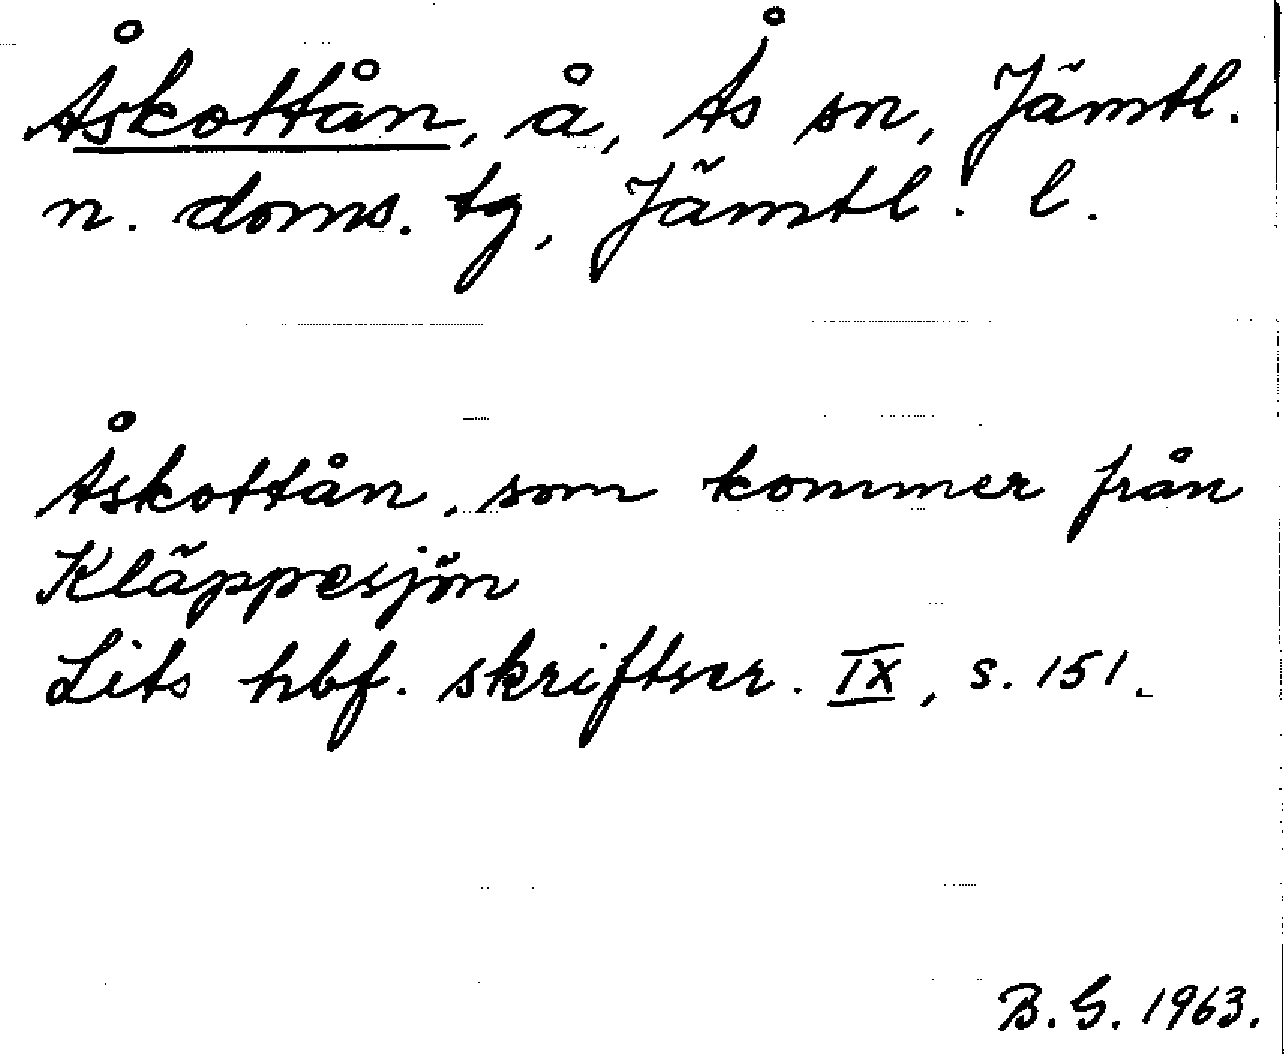 Åskottån, å, Ås sn, Jämtl.
n. doms. tg, Jämtl. l.
Åskottån, som kommer från
Kläppesjön
Lits hbf. skriftser. IX, s. 151.
B. G. 1963.